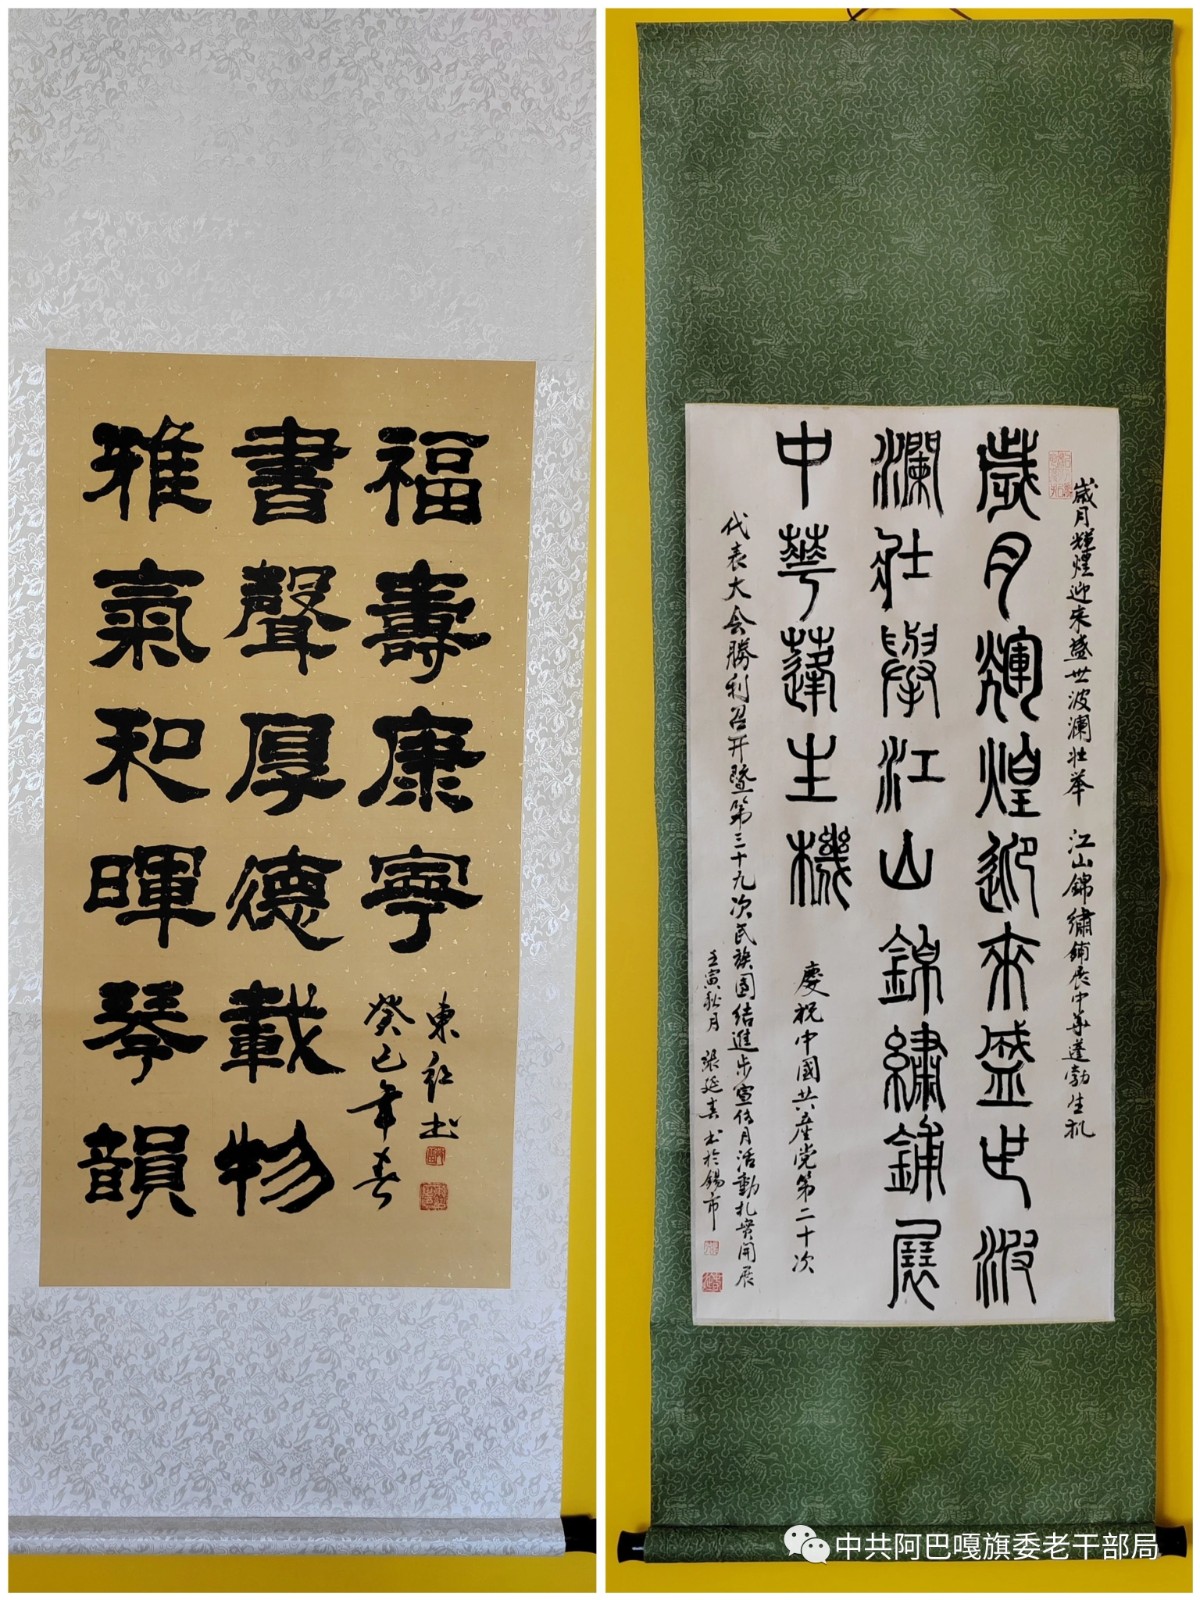 福壽康寧
東紅书
癸巳年春
書聲厚德載物
雅氣和暉琴韻
歲月輝煌迎来盛世波澜壮举 江山錦繡鋪展中华蓬勃生机
歲月輝煌迎來盛世波
瀾壯舉江山錦繡鋪展
中華蓬生機
慶祝中國共產党第二十次
代表大会勝利召开暨第三十九次民族团结進步宣传月活動扎实開展
壬寅秋月 張延春书於锡市
中共阿巴嘎旗委老干部局